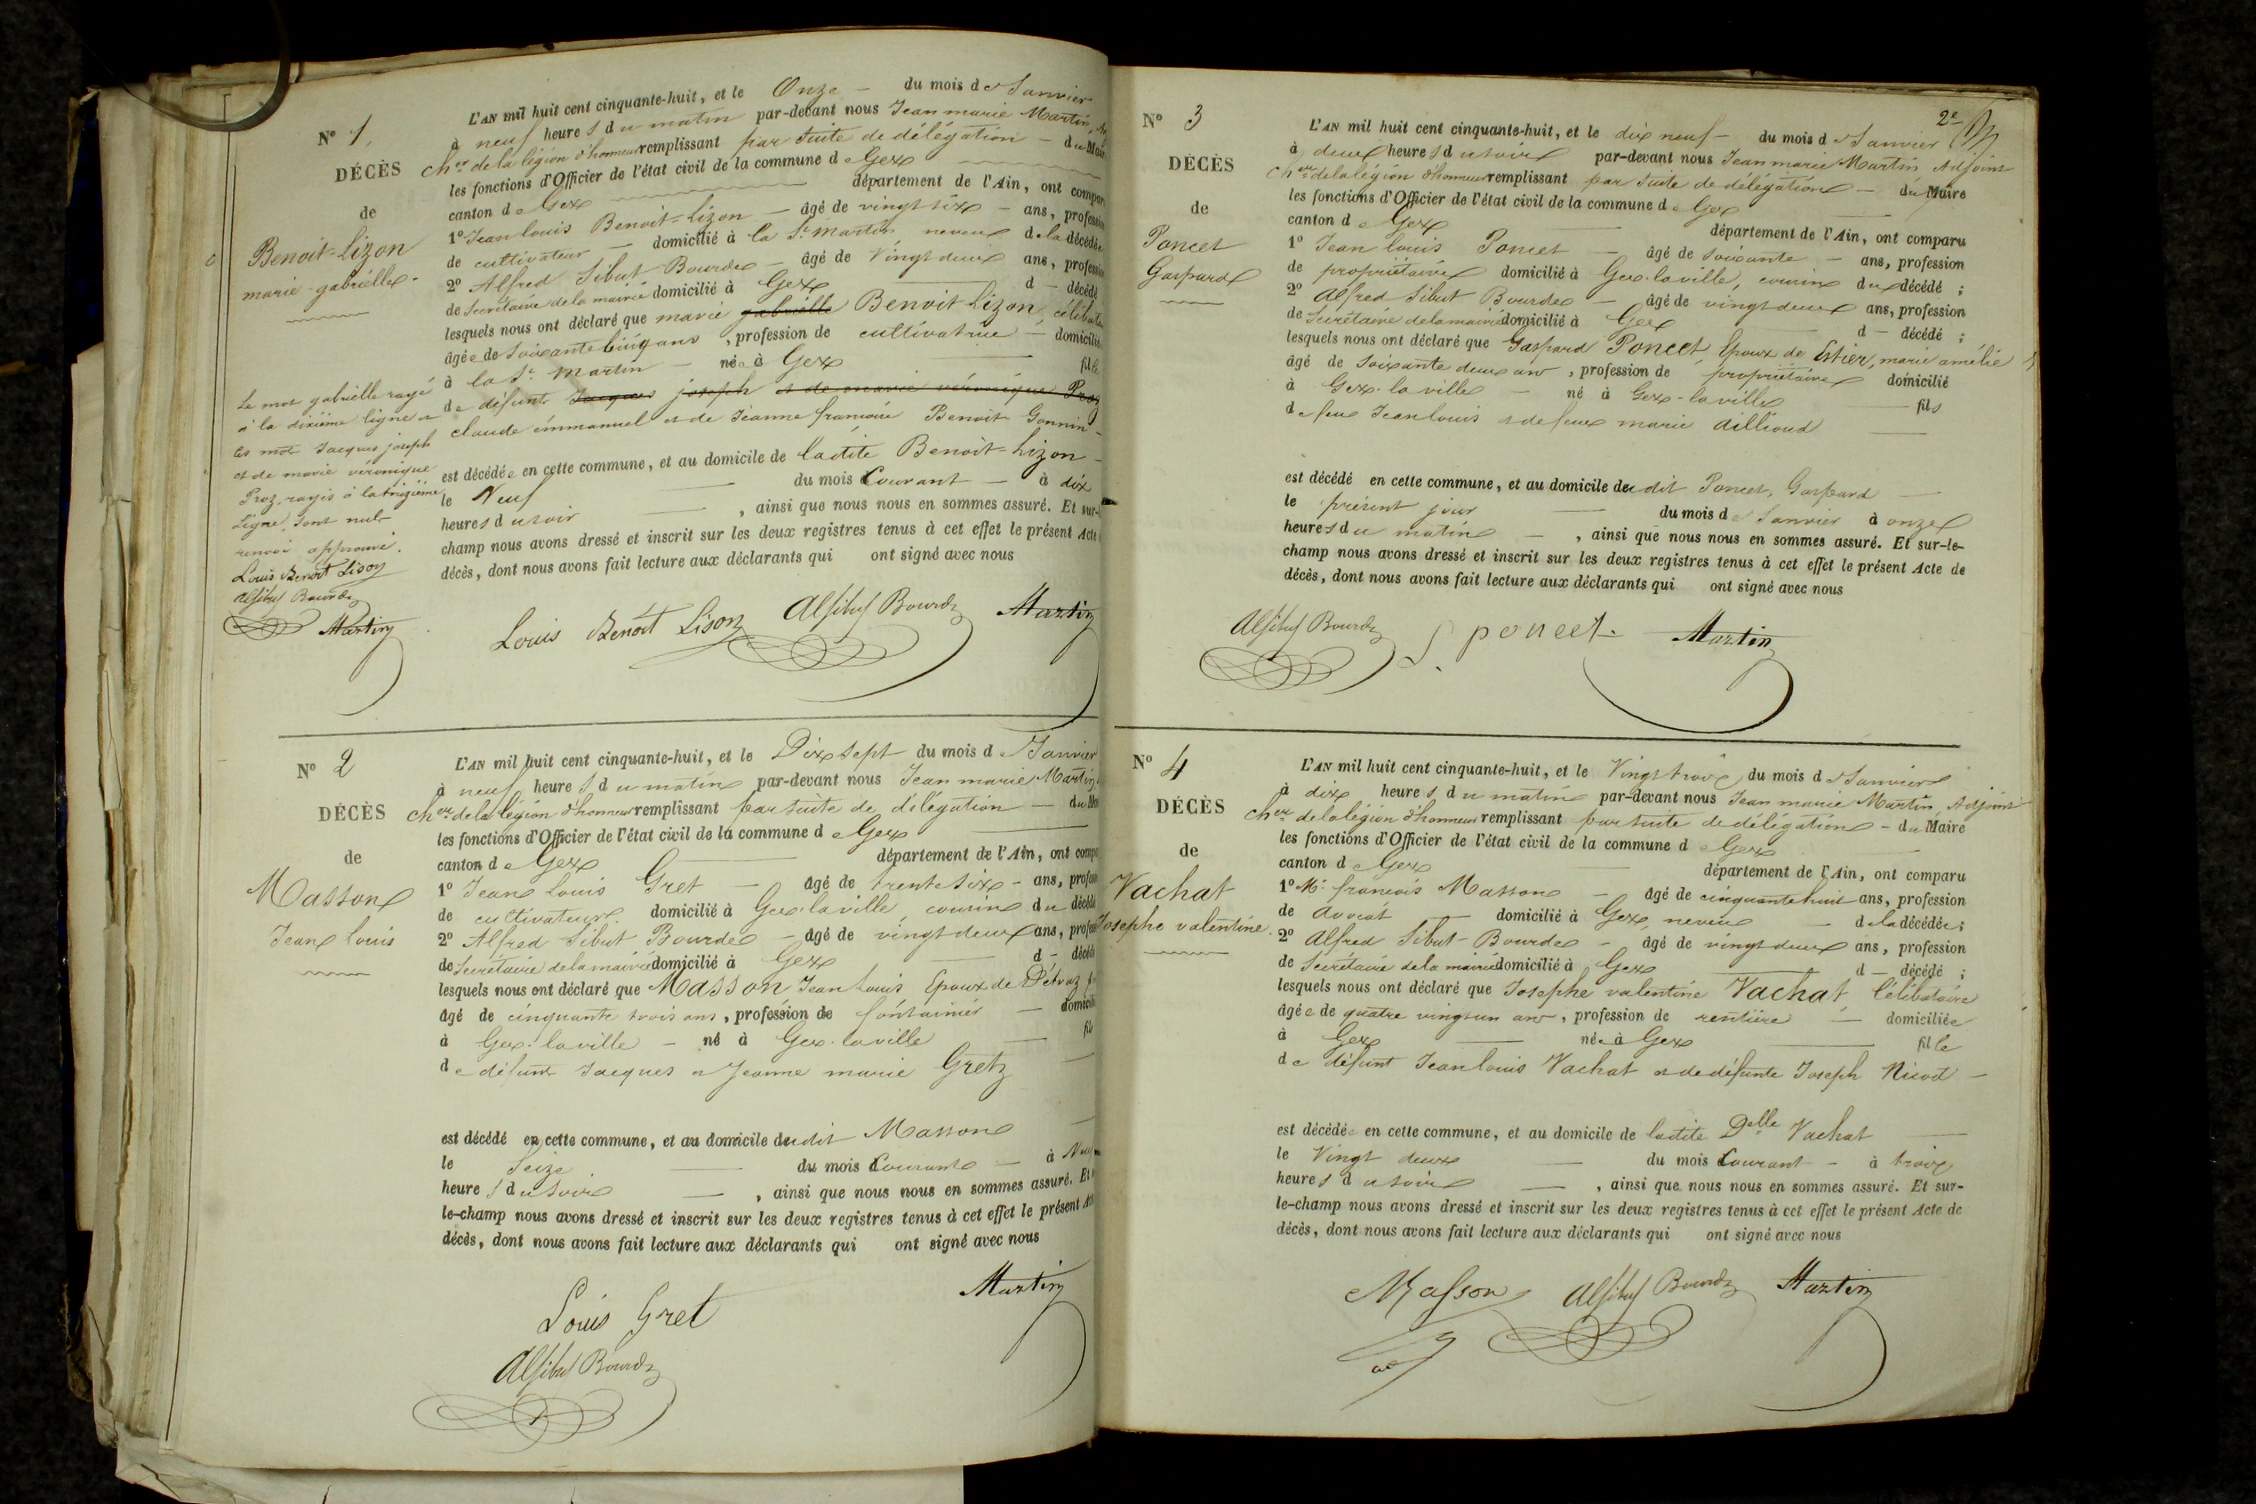 N° 1.
DÉCÈS
de
Benoit-Lizon
marie-gabrielle-
Le mot gabrielle rayé
à la dixième ligne et
les mots Jacques joseph
et de marie véronique
Proz, rayés à la treizième
Ligne, sont nuls
renvoi approuvé.
Louis Benoit Lison
Alf Sibut Bourde
Martin
L'AN mil huit cent cinquante-huit, et le Onze - du mois de Janvier
à neuf heures du matin par-devant nous Jean marie Martin,
Cher de la légion d'honneur remplissant par suite de délégation - du Maire
les fonctions d'Officier de l'état civil de la commune de Gex
canton de Gex département de l'Ain, ont comparu
1° Jean louis Benoit-Lizon - âgé de vingt six - ans, profession
de cultivateur - domicilié à la St. Martin, neveu de la décédée
2° Alfred Sibut-Bourde - âgé de Vingt deux ans, profession
de Secrétaire de la mairie domicilié à Gex d - décédé
lesquels nous ont déclaré que marie gabrielle Benoit-Lizon, célibataire
âgée de Soixante cinq ans, profession de cultivatrice - domiciliée
à la St. Martin - née à Gex fille
de défunts Jacques joseph et de marie véronique Proz
claude emmanuel et de Jeanne françoise Benoit-Gonnin -
est décédée en cette commune, et au domicile de ladite Benoit-Lizon -
le Neuf du mois Courant - à dix
heures du soir , ainsi que nous nous en sommes assuré. Et sur-
champ nous avons dressé et inscrit sur les deux registres tenus à cet effet le présent Acte
décès, dont nous avons fait lecture aux déclarants qui ont signé avec nous
Louis Benoît Lison Alf Sibut Bourde Martin
N° 2
DÉCÈS
de
Masson
Jean louis
L'AN mil huit cent cinquante-huit, et le Dix sept du mois de Janvier
à neuf heures du matin par-devant nous Jean marie Martin,
Cher de la légion d'honneur remplissant par suite de délégation - du
les fonctions d'Officier de l'état civil de la commune de Gex
canton de Gex département de l'Ain, ont
1° Jean Louis Gret - âgé de trente six - ans,
de cultivateur domicilié à Gex-la-ville, cousin du décédé
2° Alfred Sibut Bourde - âgé de vingt deux ans,
de Secrétaire de la mairie domicilié à Gex d - décédé
lesquels nous ont déclaré que Masson Jean Louis Epoux de Pétroz
âgé de cinquante trois ans, profession de fontainier - domicilié
à Gex-la-ville - né à Gex-la-ville fils
de défunts Jacques et Jeanne marie Gretz
est décédé en cette commune, et au domicile du dit Masson
le Seize du mois Courant - à
heures du soir , ainsi que nous nous en sommes assuré. Et
le-champ nous avons dressé et inscrit sur les deux registres tenus à cet effet le présent
décès, dont nous avons fait lecture aux déclarants qui ont signé avec nous
Martin
Louis Gret
Alf Sibut Bourde
2e
N° 3
DÉCÈS
de
Poncet
Gaspard
L'AN mil huit cent cinquante-huit, et le dix neuf - du mois de Janvier
à deux heures du soir par-devant nous Jean marie Martin Adjoint
Cher de la légion d'honneur remplissant par suite de délégation - du Maire
les fonctions d'Officier de l'état civil de la commune de Gex
canton de Gex département de l'Ain, ont comparu
1° Jean louis Poncet - âgé de Soixante - ans, profession
de propriétaire domicilié à Gex-la-ville, cousin du décédé ;
2° Alfred Sibut Bourde - âgé de vingt deux ans, profession
de Secrétaire de la mairie domicilié à Gex d - décédé ;
lesquels nous ont déclaré que Gaspard Poncet, Epoux de Estier, marie amélie
âgé de soixante deux ans, profession de propriétaire domicilié
à Gex-la-ville - né à Gex-la-ville fils
de feu Jean louis et de feue marie dillioud
est décédé en cette commune, et au domicile du dit Poncet, Gaspard
le présent jour du mois de Janvier à onze
heures du matin - , ainsi que nous nous en sommes assuré. Et sur-le-
champ nous avons dressé et inscrit sur les deux registres tenus à cet effet le présent Acte de
décès, dont nous avons fait lecture aux déclarants qui ont signé avec nous
Alf Sibut Bourde poncet Martin
N° 4
DÉCÈS
de
Vachat
Josephe valentine.
L'AN mil huit cent cinquante-huit, et le Vingt trois du mois de Janvier
à dix heures du matin par-devant nous Jean marie Martin, Adjoint
Cher de la légion d'honneur remplissant par suite de délégation - du Maire
les fonctions d'Officier de l'état civil de la commune de Gex
canton de Gex département de l'Ain, ont comparu
1° Mr. françois Masson - âgé de cinquante huit ans, profession
de avocat domicilié à Gex, neveu - de la décédée ;
2° Alfred Sibut-Bourde - âgé de vingt deux ans, profession
de Secrétaire de la mairie domicilié à Gex d - décédé ;
lesquels nous ont déclaré que Josephe valentine Vachat, Célibataire
âgée de quatre vingt un ans, profession de rentière - domiciliée
à Gex née à Gex fille
de défunt Jean louis Vachat et de défunte Joseph Nicod -
est décédée en cette commune, et au domicile de ladite Delle Vachat
le Vingt deux du mois Courant - à trois
heures du soir , ainsi que nous nous en sommes assuré. Et sur-
le-champ nous avons dressé et inscrit sur les deux registres tenus à cet effet le présent Acte de
décès, dont nous avons fait lecture aux déclarants qui ont signé avec nous
Masson Alf Sibut Bourde Martin